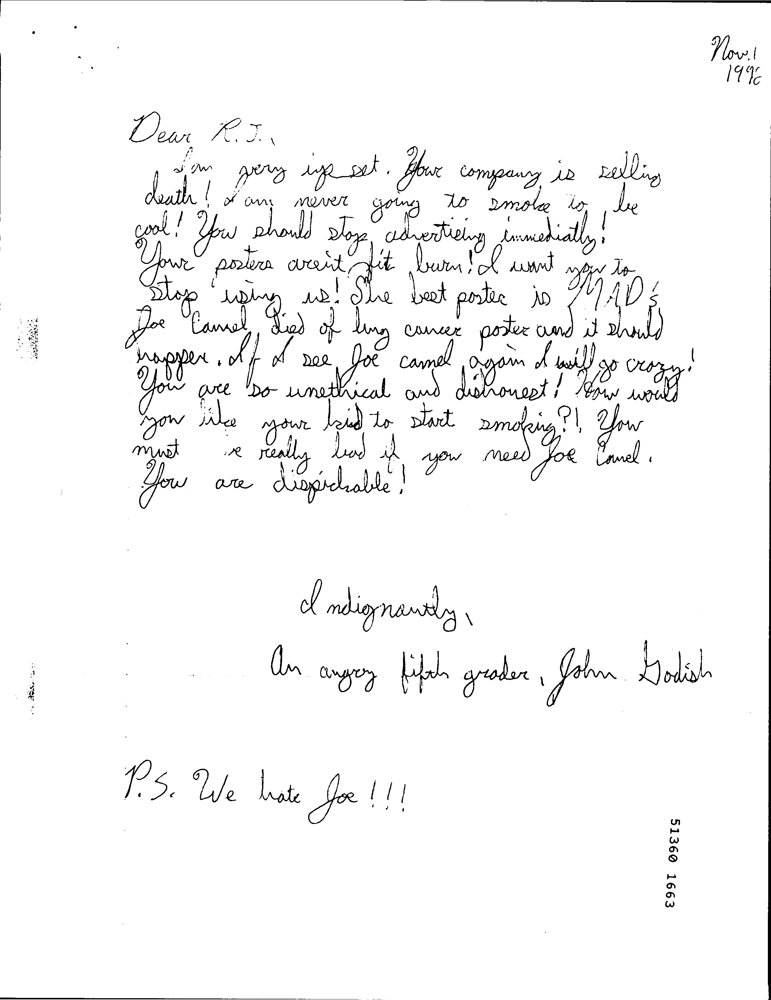 Nov. 1
1996
Dear R.J.,
I am very upset. Your company is selling
death! I am never going to smoke to be
cool! You should stop adverticing immediatly!
Your posters aren't fit burn! I want you to
stop using us! The best poster is MAD's
Joe Camel died of lung cancer poster and it should
happen. If I see Joe camel again I will go crazy!
You are so unethical and dishonest! How would
you like your kid to start smoking?! You
must be really bad if you need Joe Camel.
You are dispickable!
Indignantly,
An angry fifth grader, John Godish
P.S. We hate Joe!!!
51360 1663